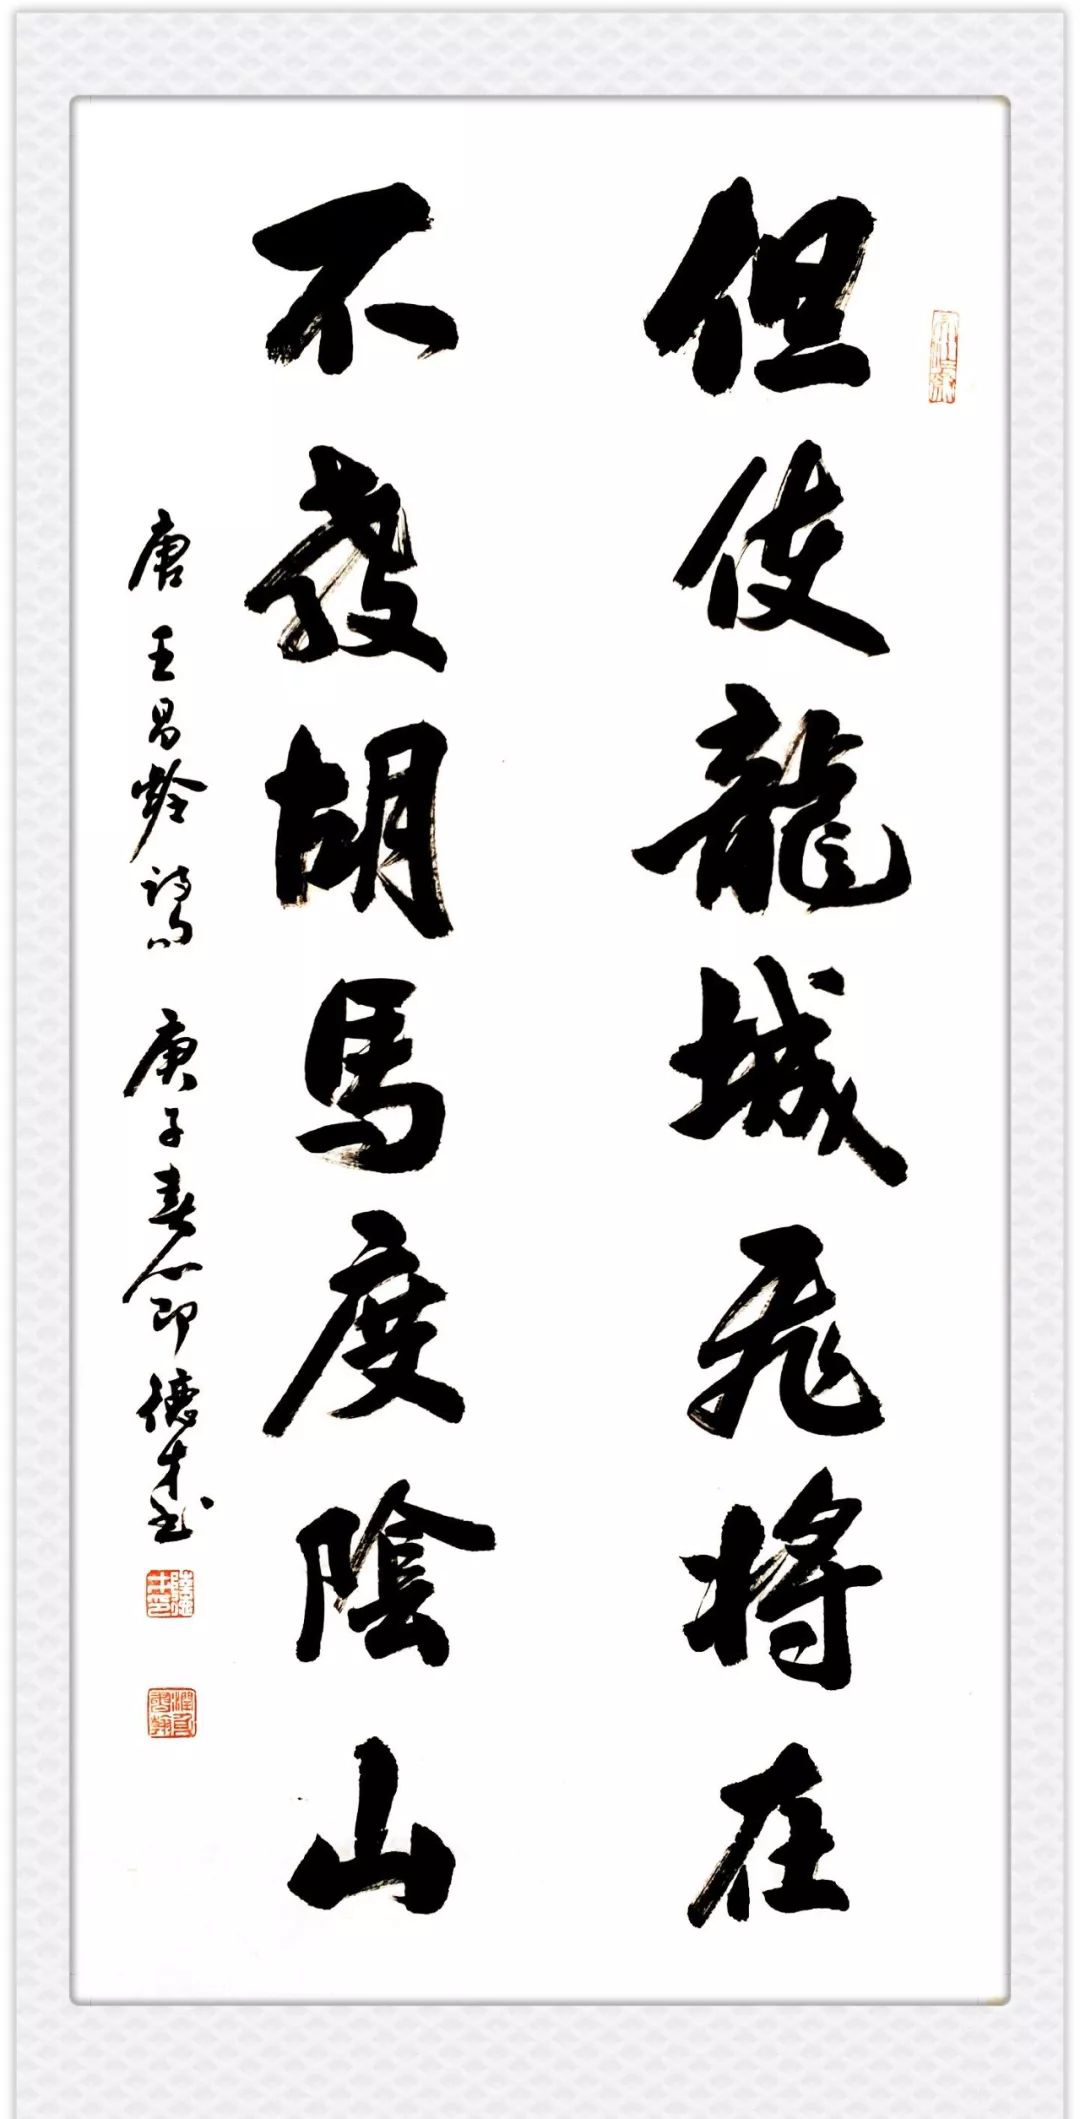 但使龍城飛将在
不教胡馬度陰山
唐王昌齡詩 庚子春節德才书